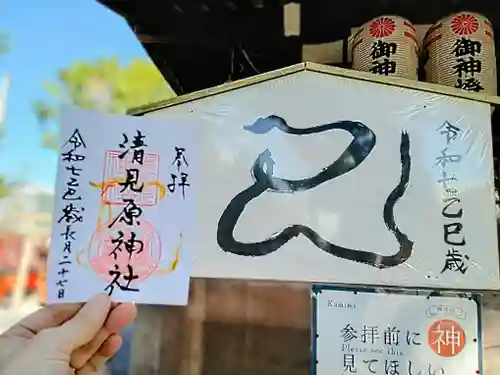 御神燈
御神燈
令和七乙巳歳
奉拝
清見原神社
令和七巳歳長月二十七日
Kamina
参拝前に
Please see this
見てほしい
神